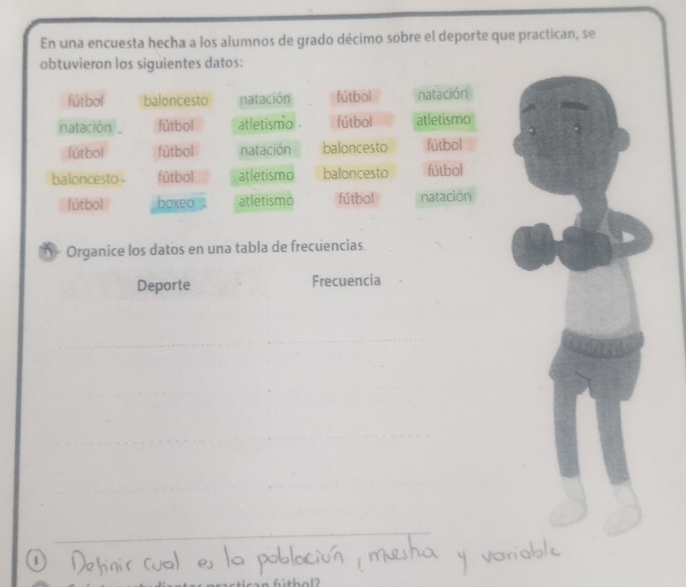 En una encuesta hecha a los alumnos de grado décimo sobre el deporte que practican, se
obtuvieron los siguientes datos:
fútbol baloncesto natación fútbol natación
natación fútbol atletismo fútbol atletismo
fútbol fútbol natación baloncesto fútbol
baloncesto fútbol atletismo baloncesto fútbol
fútbol boxeo atletismo fútbol natación
Organice los datos en una tabla de frecuencias
Deporte Frecuencia
① Definir cual es la población, muestra y variable
practican fútbol?